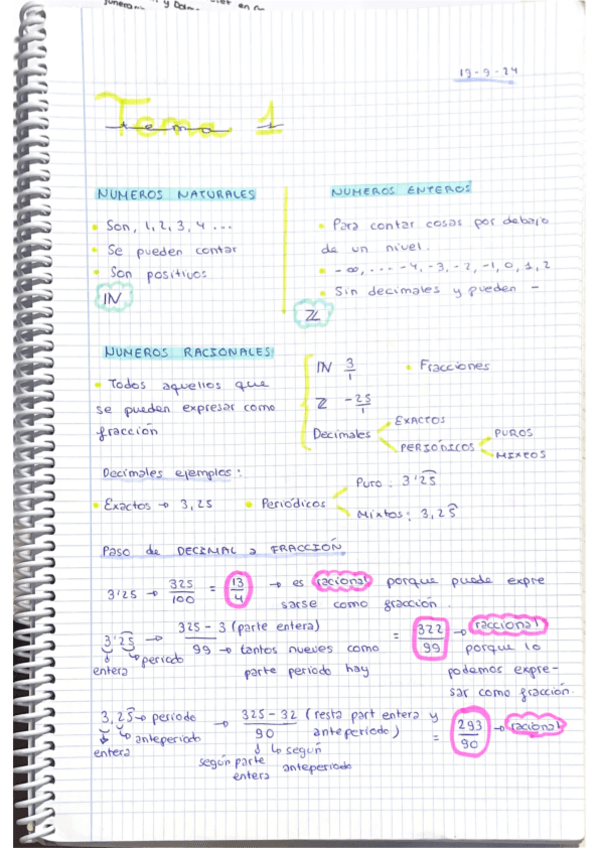 y
en
19-9-24
Tema 1
tema 1
NUMEROS NATURALES
• Son, 1, 2, 3, 4 ...
• Se pueden contar
• Son positivos
IN
NUMEROS ENTEROS
• Para contar cosas por debajo
de un nivel.
• -∞, ... -4, -3, -2, -1, 0, 1, 2
• Sin decimales y pueden -
ℤ
NUMEROS RACIONALES
• Todos aquellos que
se pueden expresar como
fracción
IN 3/1 • Fracciones
ℤ -25/1
Decimales EXACTOS
PERIÓDICOS PUROS
MIXTOS
Decimales ejemplos:
• Exactos → 3,25 • Periódicos
Puro: 3'25
Mixtos: 3,25
Paso de DECIMAL a FRACCIÓN
3'25 → 325/100 = 13/4 → es racional porque puede expre
sarse como fracción.
3'25 → 325 - 3 (parte entera) / 99 → tantos nueves como = 322/99 → raccional
entera periodo parte periodo hay porque lo
podemos expre-
sar como fracción.
3,25 → periodo → 325 - 32 (resta part entera y
anteperiodo anteperiodo)
entera 90 = 293/90 → racional
según parte según
entera anteperiodo